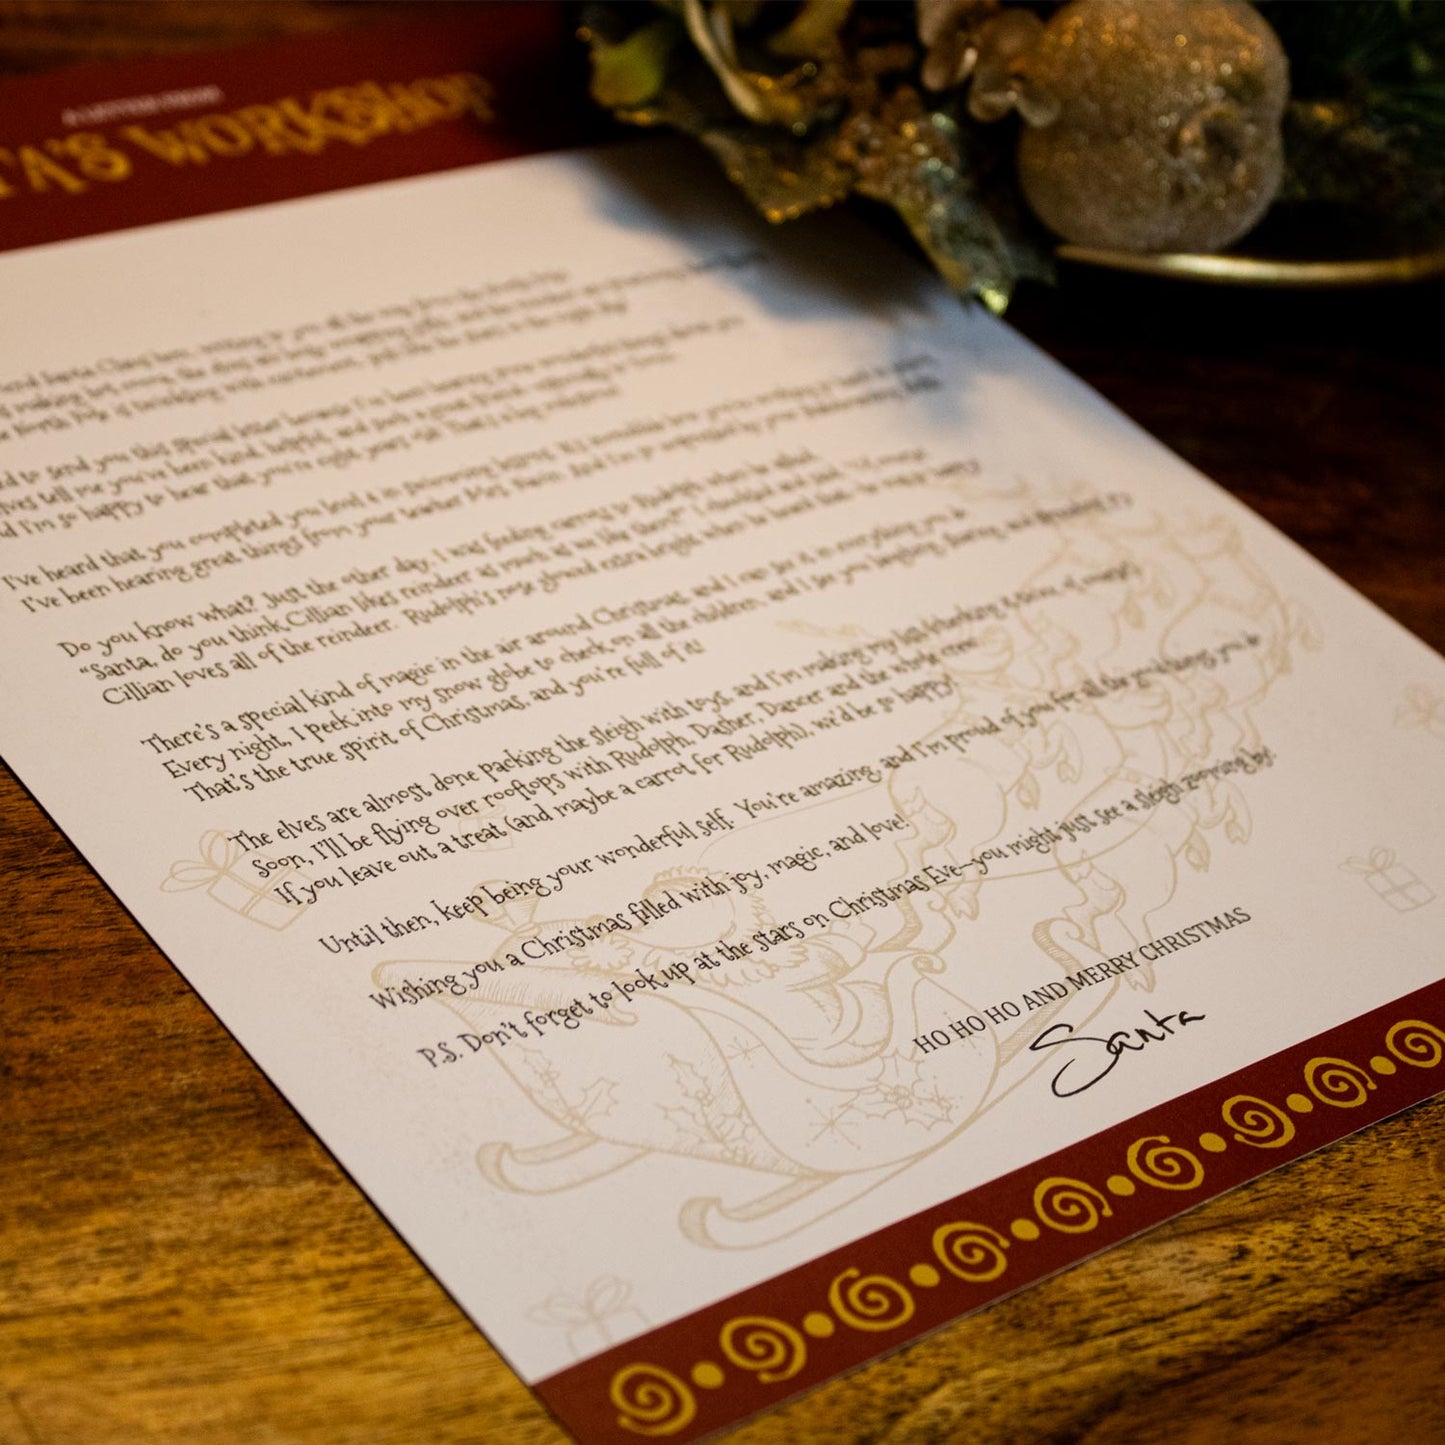 A LETTER FROM
WORKSHOP
Santa Claus here, writing to you all the way from the North Pole
making hot cocoa, the elves are busy wrapping gifts, and the reindeer are practicing
North Pole is twinkling with excitement, just like the stars in the night sky!
to send you this special letter because I've been hearing some wonderful things about you
elves tell me you've been kind, helpful, and such a great friend
I'm so happy to hear that you're eight years old! That's a big milestone!
I've heard that you completed you level 4 in swimming lessons. It's incredible how you're
I've been hearing great things from your teacher And I'm so impressed by your
Do you know what? Just the other day, I was feeding carrots to Rudolph when he asked,
"Santa, do you think Cillian likes reindeer as much as we like them?" I chuckled and said, "Of course
Cillian loves all of the reindeer. Rudolph's nose glowed extra bright when he heard that - he was so happy!
There's a special kind of magic in the air around Christmas, and I can see it in everything you do.
Every night, I peek into my snow globe to check on all the children, and I see you laughing, sharing, and spreading joy.
That's the true spirit of Christmas, and you're full of it!
The elves are almost done packing the sleigh with toys, and I'm making my list (checking it twice, of course!).
Soon, I'll be flying over rooftops with Rudolph, Dasher, Dancer and the whole crew.
If you leave out a treat (and maybe a carrot for Rudolph), we'd be so happy!
Until then, keep being your wonderful self. You're amazing, and I'm proud of you for all the good things you do.
Wishing you a Christmas filled with joy, magic, and love!
P.S. Don't forget to look up at the stars on Christmas Eve—you might just see a sleigh zooming by!
HO HO HO AND MERRY CHRISTMAS
Santa